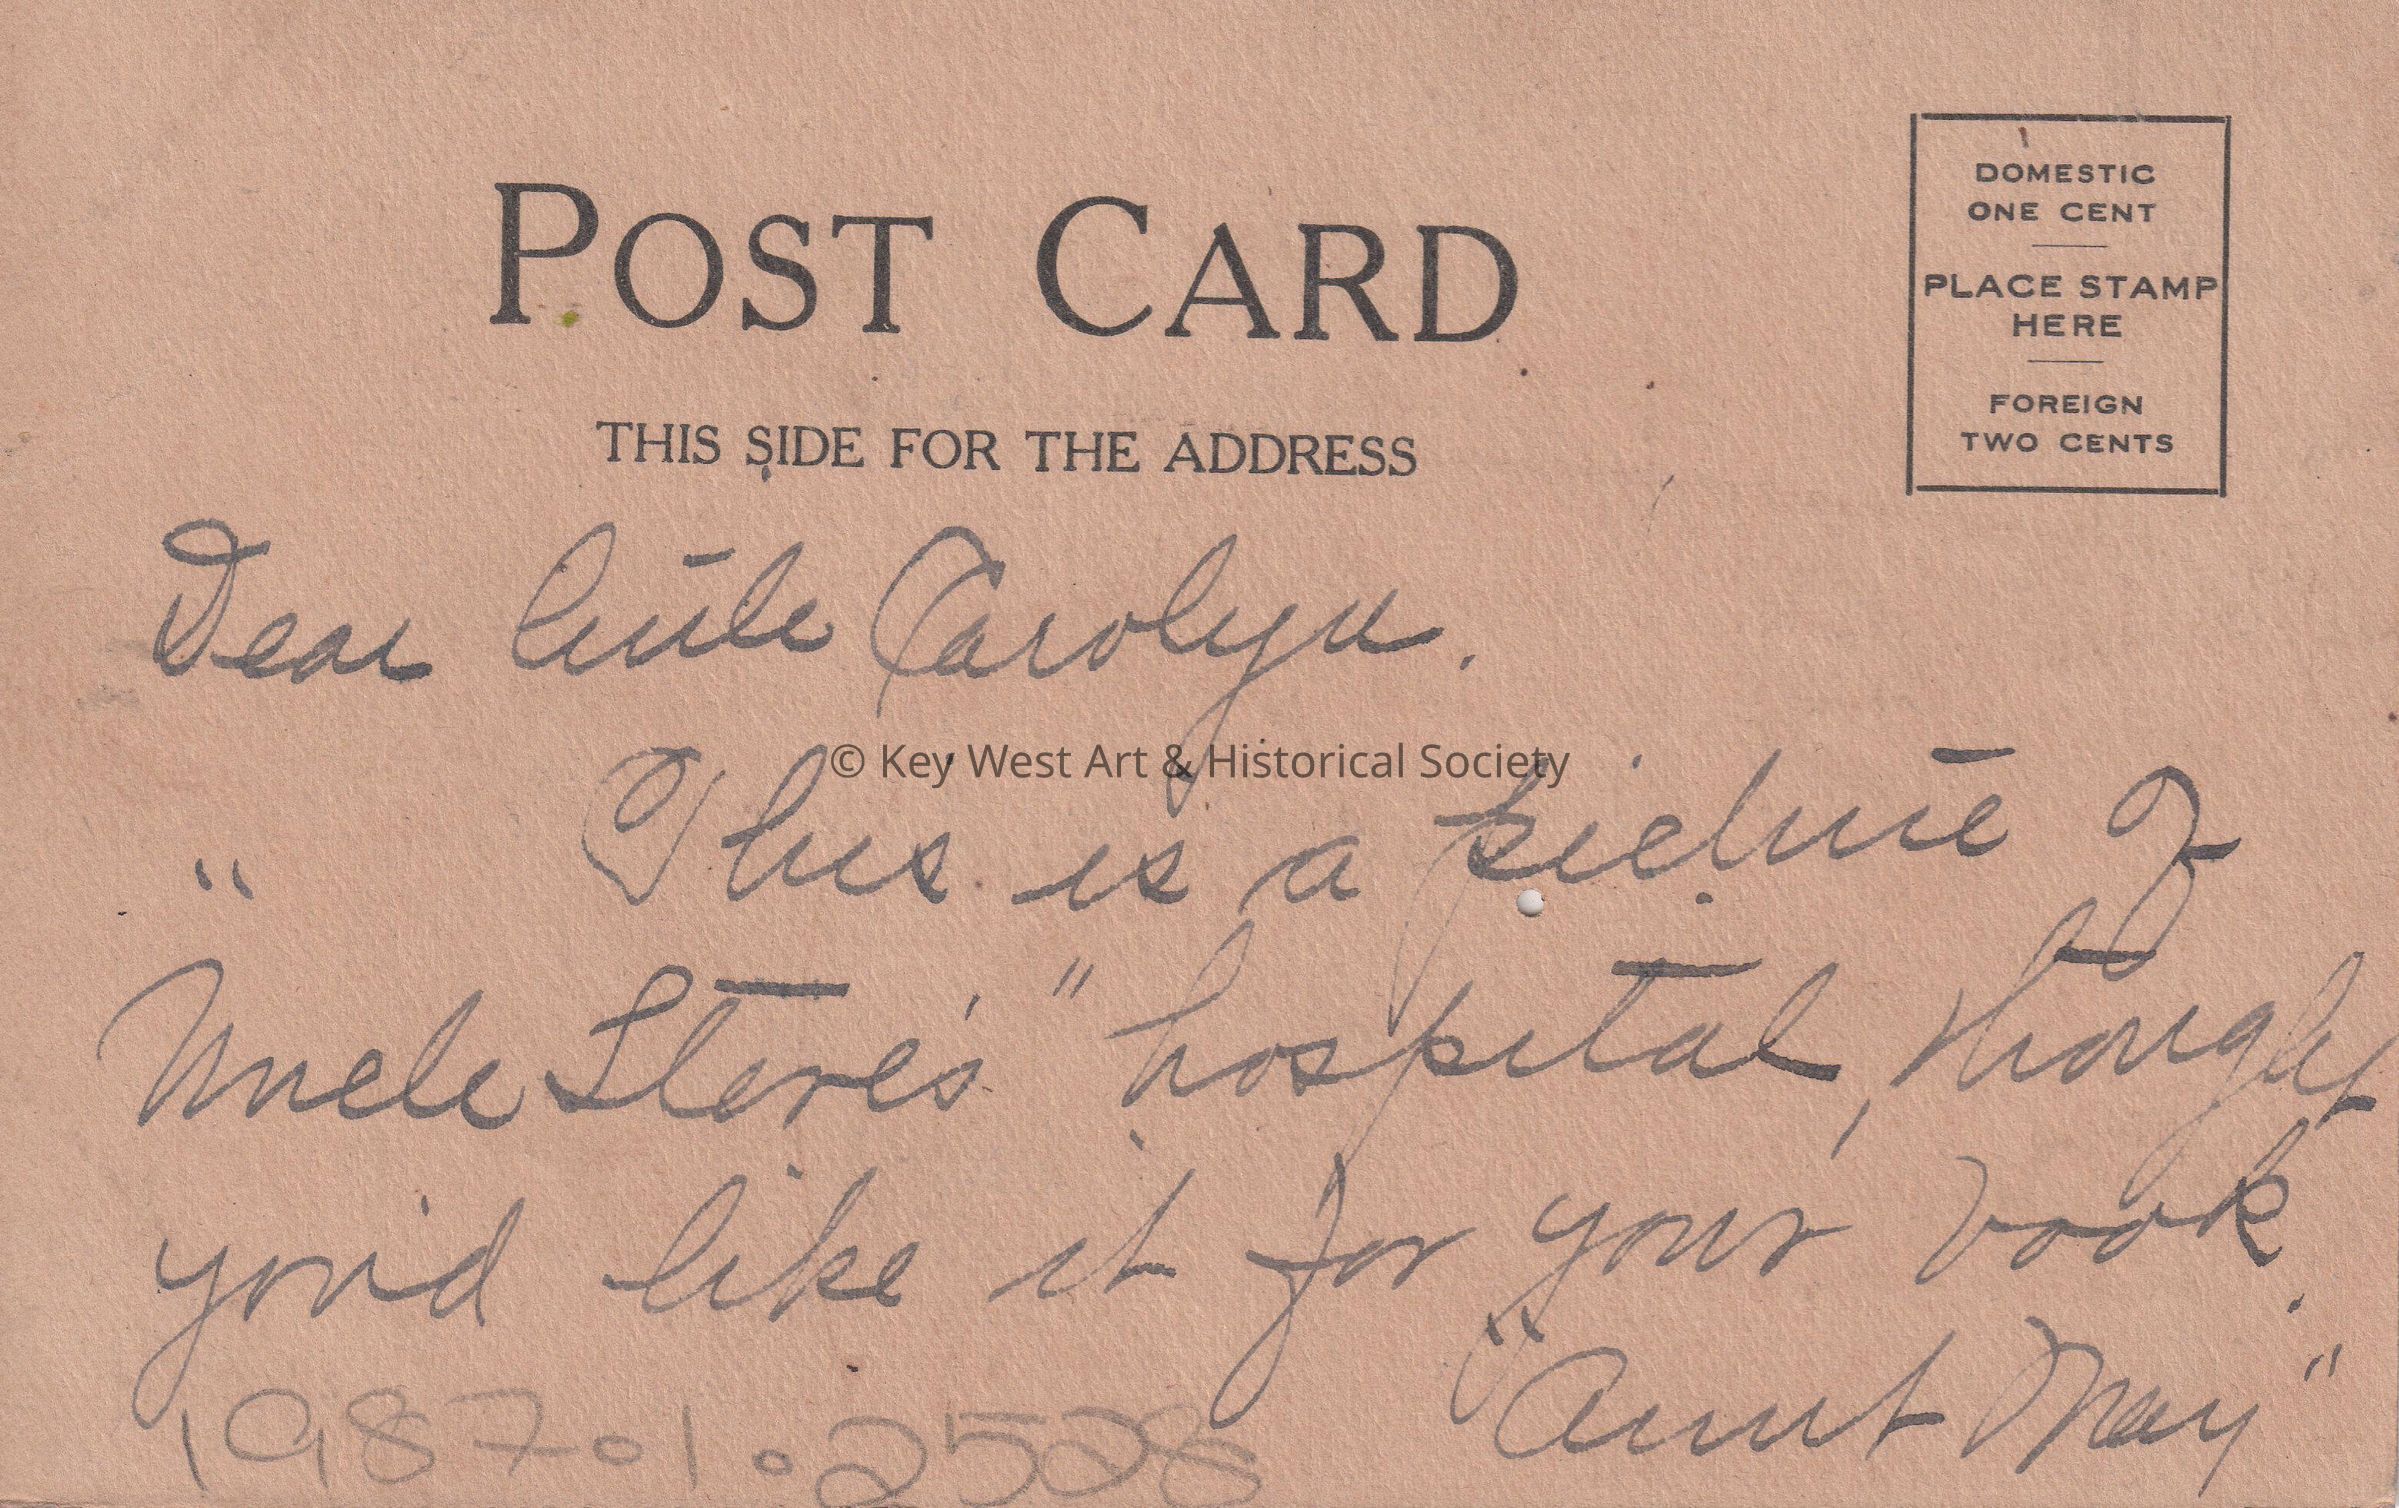 POST CARD
THIS SIDE FOR THE ADDRESS
DOMESTIC
ONE CENT
PLACE STAMP
HERE
FOREIGN
TWO CENTS
Dear little Carolyn.
© Key West Art & Historical Society
This is a picture of
"Uncle Steve's" hospital, thought
you'd like it for your book.
"Aunt May"
1987.1.2528